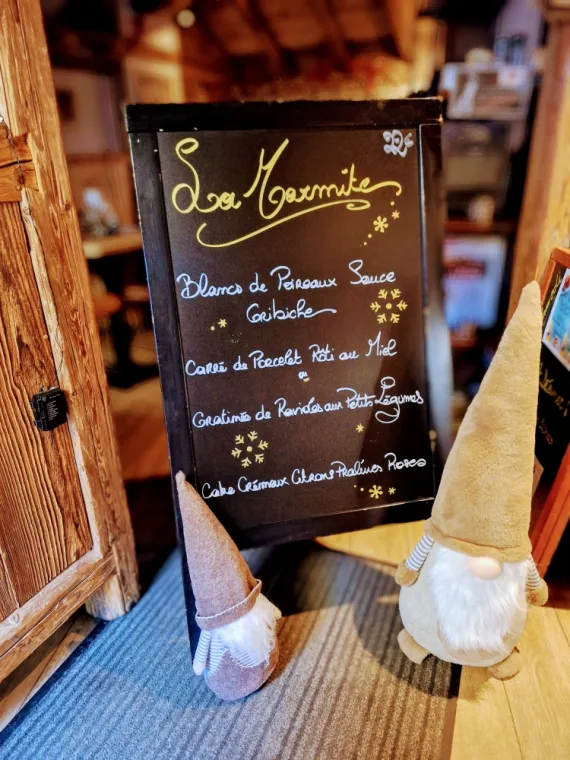 22€
La Marmite
Blancs de Poireaux Sauce
Gribiche
Carré de Porcelet Rôti au Miel
ou
Gratinée de Ravioles aux Petits Légumes
Cake Crémeux Citrons Pralines Roses